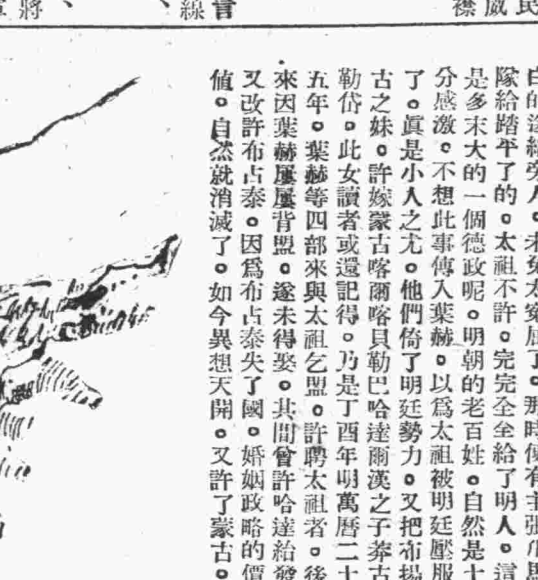 民威襟
言
線
將
隊給踏平了的。太祖不許。完完全全給了明人。這
是多末大的一個德政呢。明朝的老百姓。自然是十
分感激。不想此事傳入葉赫。以爲太祖被明廷壓服
了。眞是小人之尤。他們倚了明廷勢力。又把布揚
古之妹。許嫁蒙古喀爾喀貝勒巴哈達爾漢之子莽古
勒岱。此女讀者或還記得。乃是丁酉年明萬曆二十
五年。葉赫等四部來與太祖乞盟。許聘太祖者。後
來因葉赫屢屢背盟。遂未得娶。其間曾許哈達給發
又改許布占泰。因爲布占泰失了國。婚姻政略的價
值。自然就消滅了。如今異想天開。又許了蒙古。